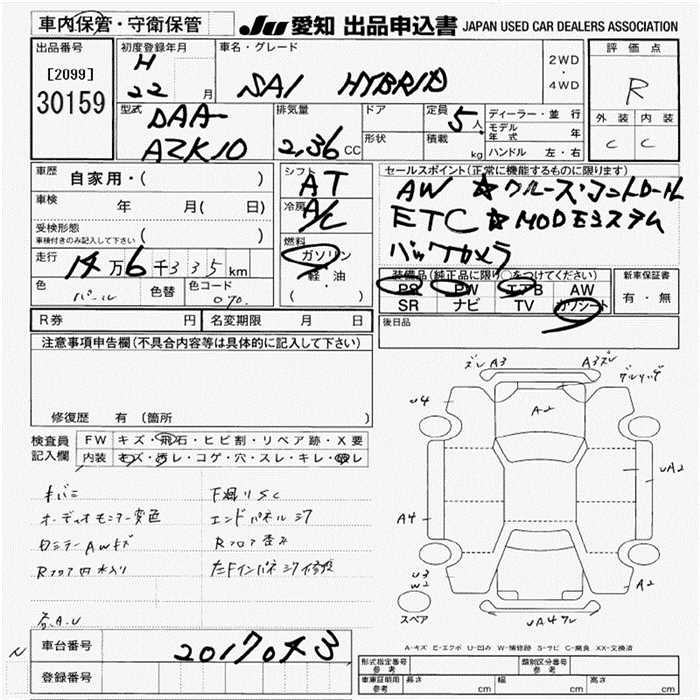 車内保管・守衛保管
JU 愛知 出品申込書 JAPAN USED CAR DEALERS ASSOCIATION
出品番号
[2099]
30159
初度登録年月
H
22 月
車名・グレード
SAI HYBRID
2WD
・
4WD
評価点
R
外装 内装
C C
型式
DAA-
AZK10
排気量
2.36 CC
ドア
形状
定員 5 人
積載 kg
ディーラー・並行
モデル年式 年
ハンドル 左・右
車歴 自家用・( )
車検 年 月( 日)
受検形態
車検付きのみ記入して下さい ( )
走行 14万6千335km
色 パール 色替 色コード 070
シフト
AT
冷房
A/C
燃料
ガソリン
軽・油
( )
セールスポイント(正常に機能するものに限ります)
AW ☆クルーズ・コントロール
ETC ☆MODEシステム
バックカメラ
装備品(純正品に限り○をつけてください)
PS PW エアB AW
SR ナビ TV カワシート
新車保証書
有・無
後日品
R券 円 名変期限 月 日
注意事項申告欄(不具合内容等は具体的に記入して下さい)
修復歴 有(箇所 )
検査員
記入欄
FW キズ・飛石・ヒビ割・リペア跡・X要
内装 キズ・汚レ・コゲ・穴・スレ・キレ・破レ
下廻りSC
オーディオモニター変色
エンドパネルシワ
Rフロア歪み
ズレ A3
A3ズレ
U4
A2
UA2
A4
U3
W2
A2
UA4
スペア
A-キズ E-エクボ U-凹み W-補修跡 S-サビ C-腐食 XX-交換済
車台番号 2017043
登録番号
N
型式指定番号
参考
類別区分番号
参考
車庫証明用
参考
長さ cm 幅 cm 高さ cm